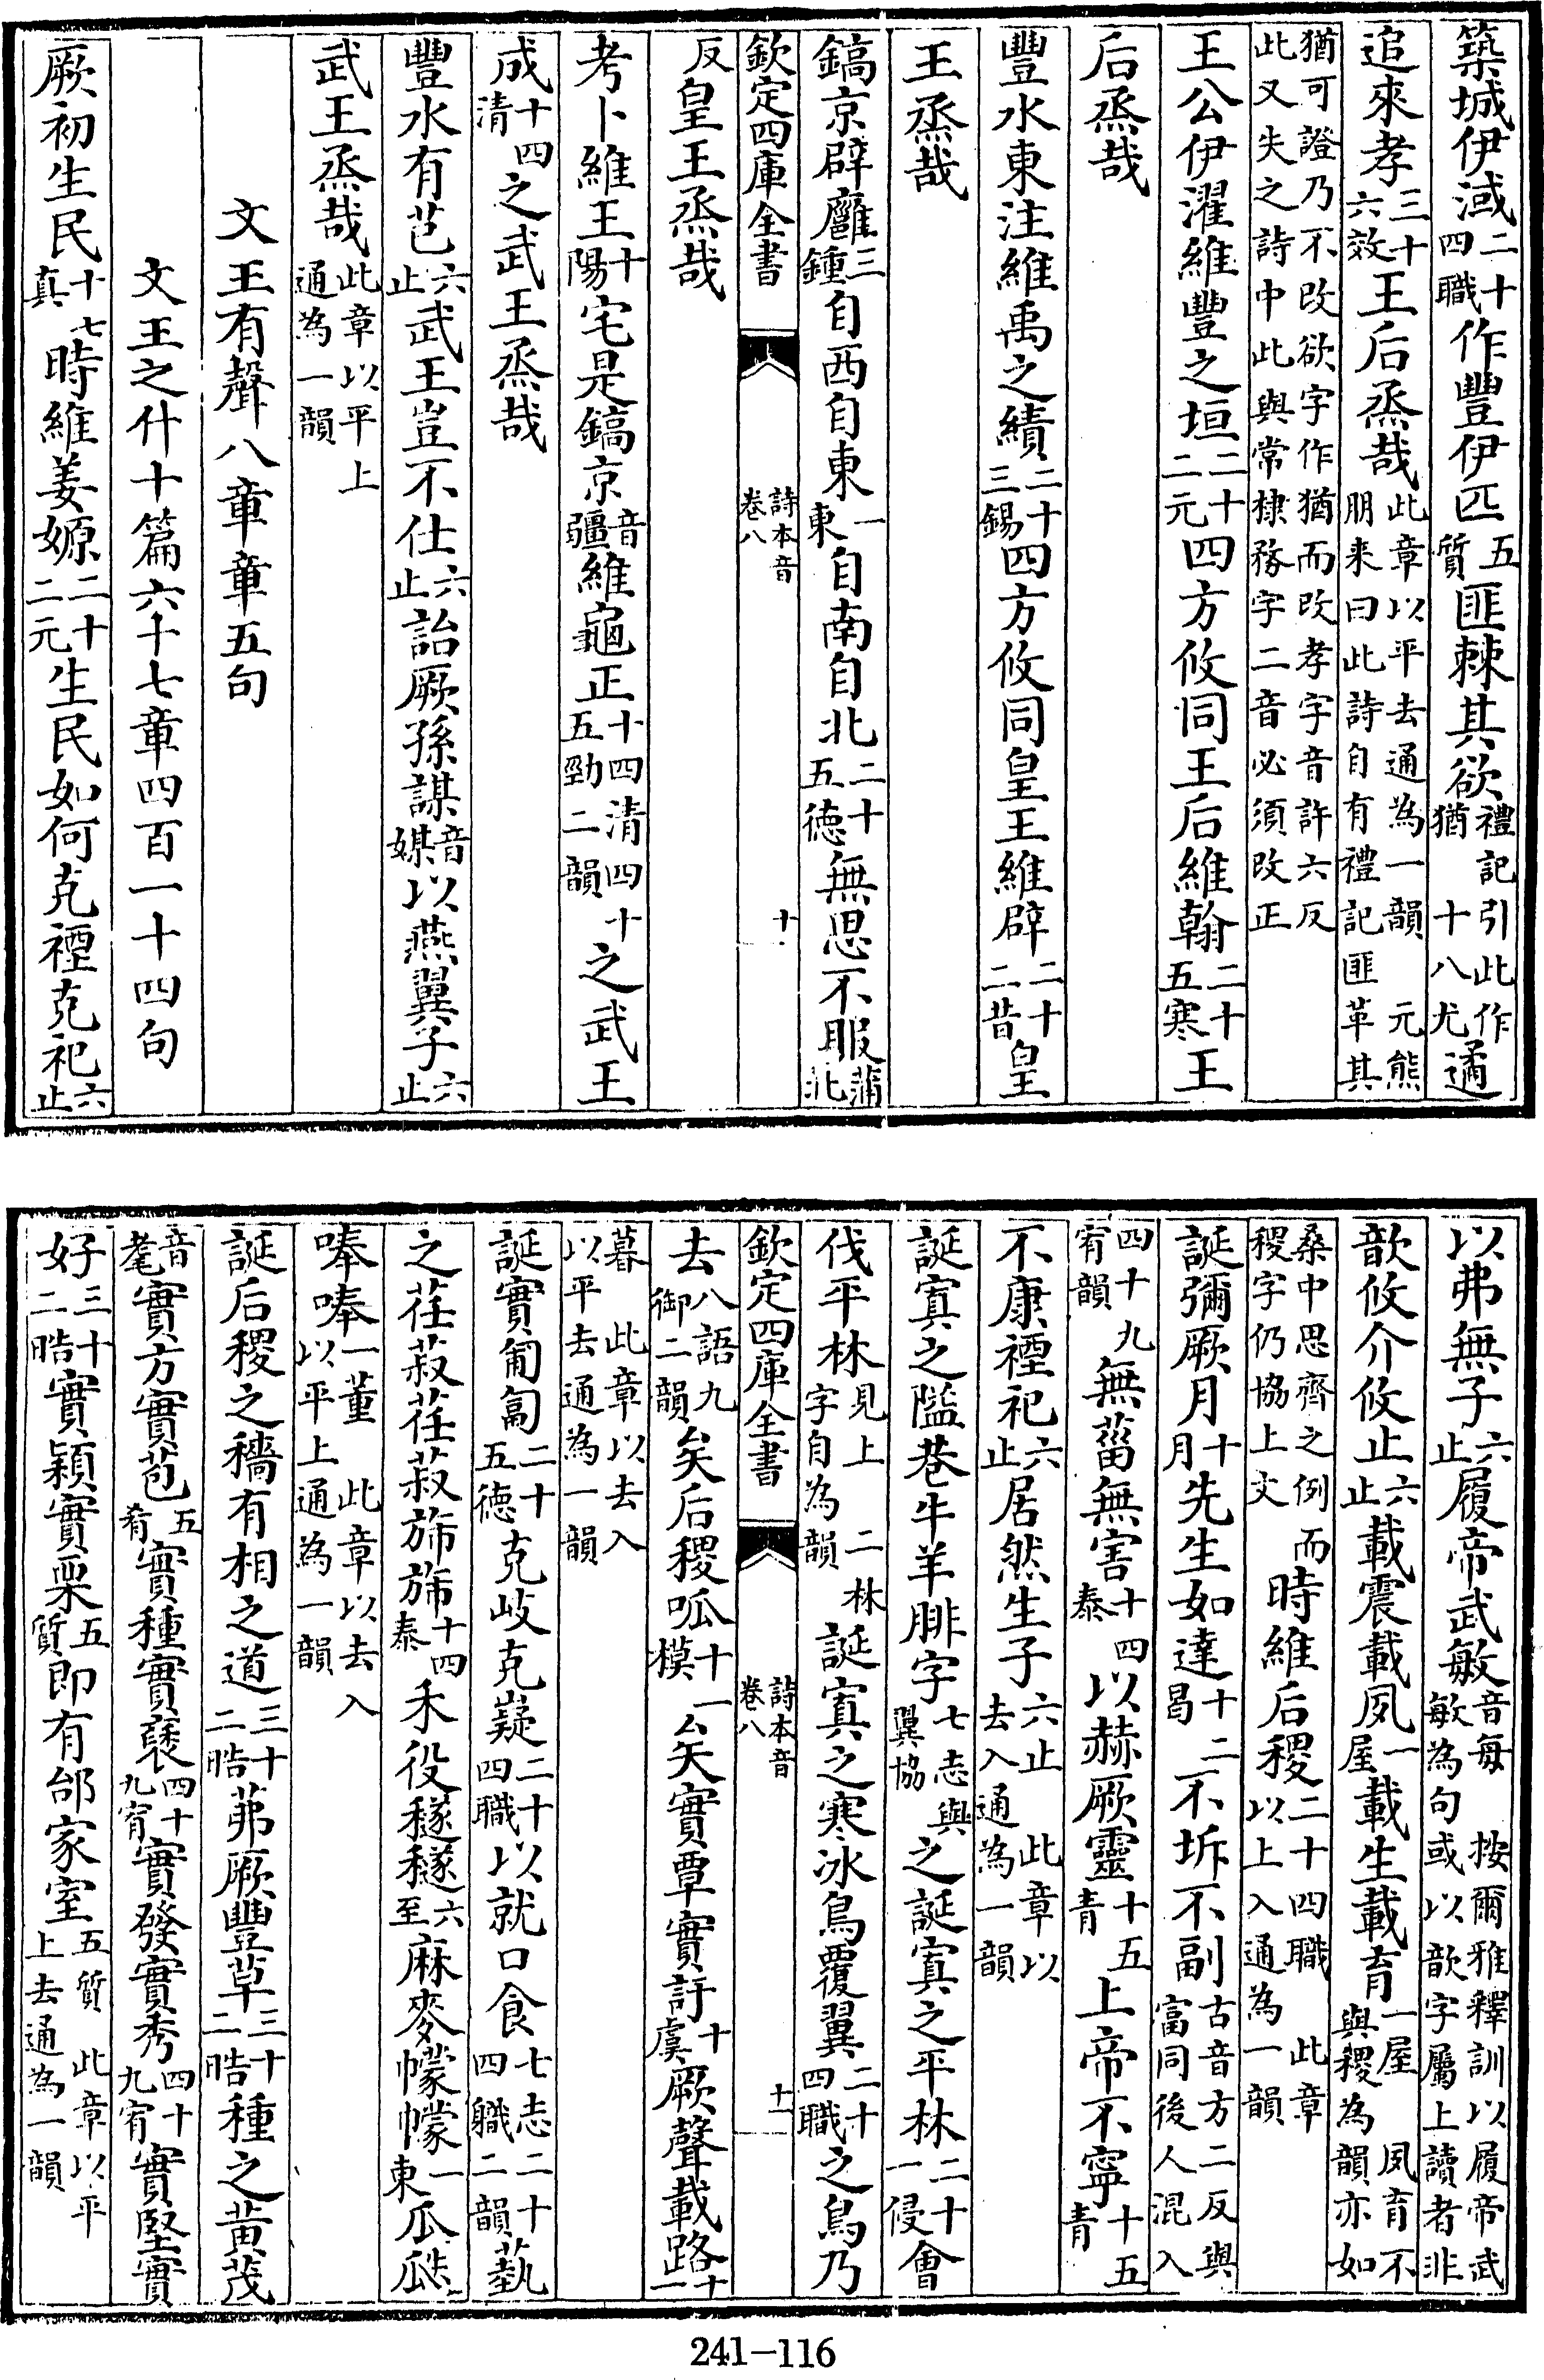 築城伊淢二十四職作豐伊匹五質匪棘其欲禮記引此作猶 十八尤遹
追來孝三十六效王后烝哉此章以平去通為一韻 元熊朋来曰此詩自有禮記匪革其
猶可證乃不改欲字作猶而改孝字音許六反此又失之詩中此與常棣務字二音必須改正
王公伊濯維豐之垣二十二元四方攸同王后維翰二十五寒王
后烝哉
豐水東注維禹之績二十三錫四方攸同皇王維辟二十二昔皇
王烝哉
鎬京辟廱三鍾自西自東一東自南自北二十五德無思不服蒲北
欽定四庫全書 詩本音 卷八 十
反皇王烝哉
考卜維王十陽宅是鎬京音疆維龜正十四清四十五勁二韻之武王
成十四清之武王烝哉
豐水有芑六止武王豈不仕六止詒厥孫謀音媒以燕翼子六止
武王烝哉此章以平上通為一韻
文王有聲八章章五句
文王之什十篇六十七章四百一十四句
厥初生民十七真時維姜嫄二十二元生民如何克禋克祀六止
以弗無子六止履帝武敏音每 按爾雅釋訓以履帝武敏為句或以歆字屬上讀者非
歆攸介攸止六止載震載夙一屋載生載育一屋 夙育不與稷為韻亦如
桑中思齊之例而稷字仍協上文時維后稷二十四職 此章以上入通為一韻
誕彌厥月十月先生如達十二曷不坼不副古音方二反與富同後人混入
四十九宥韻無菑無害十四泰以赫厥靈十五青上帝不寧十五青
不康禋祀六止居然生子六止 此章以去入通為一韻
誕寘之隘巷牛羊腓字七志與翼協之誕寘之平林二十一侵會
伐平林見上 二林字自為韻誕寘之寒冰鳥覆翼二十四職之鳥乃
欽定四庫全書 詩本音 卷八 十一
去八語九御二韻矣后稷呱十一模矣實覃實訏十虞厥聲載路十一
暮 此章以去入以平去通為一韻
誕實匍匐二十五德克岐克嶷二十四職以就口食七志二十四職二韻蓺
之荏菽荏菽旆旆十四泰禾役穟穟六至麻麥幪幪一東瓜瓞
唪唪一董 此章以去入以平上通為一韻
誕后稷之穡有相之道三十二晧茀厥豐草三十二晧種之黃茂
音耄實方實苞五肴實種實褎四十九宥實發實秀四十九宥實堅實
好三十二晧實穎實栗五質即有邰家室五質 此章以平上去通為一韻
241-116